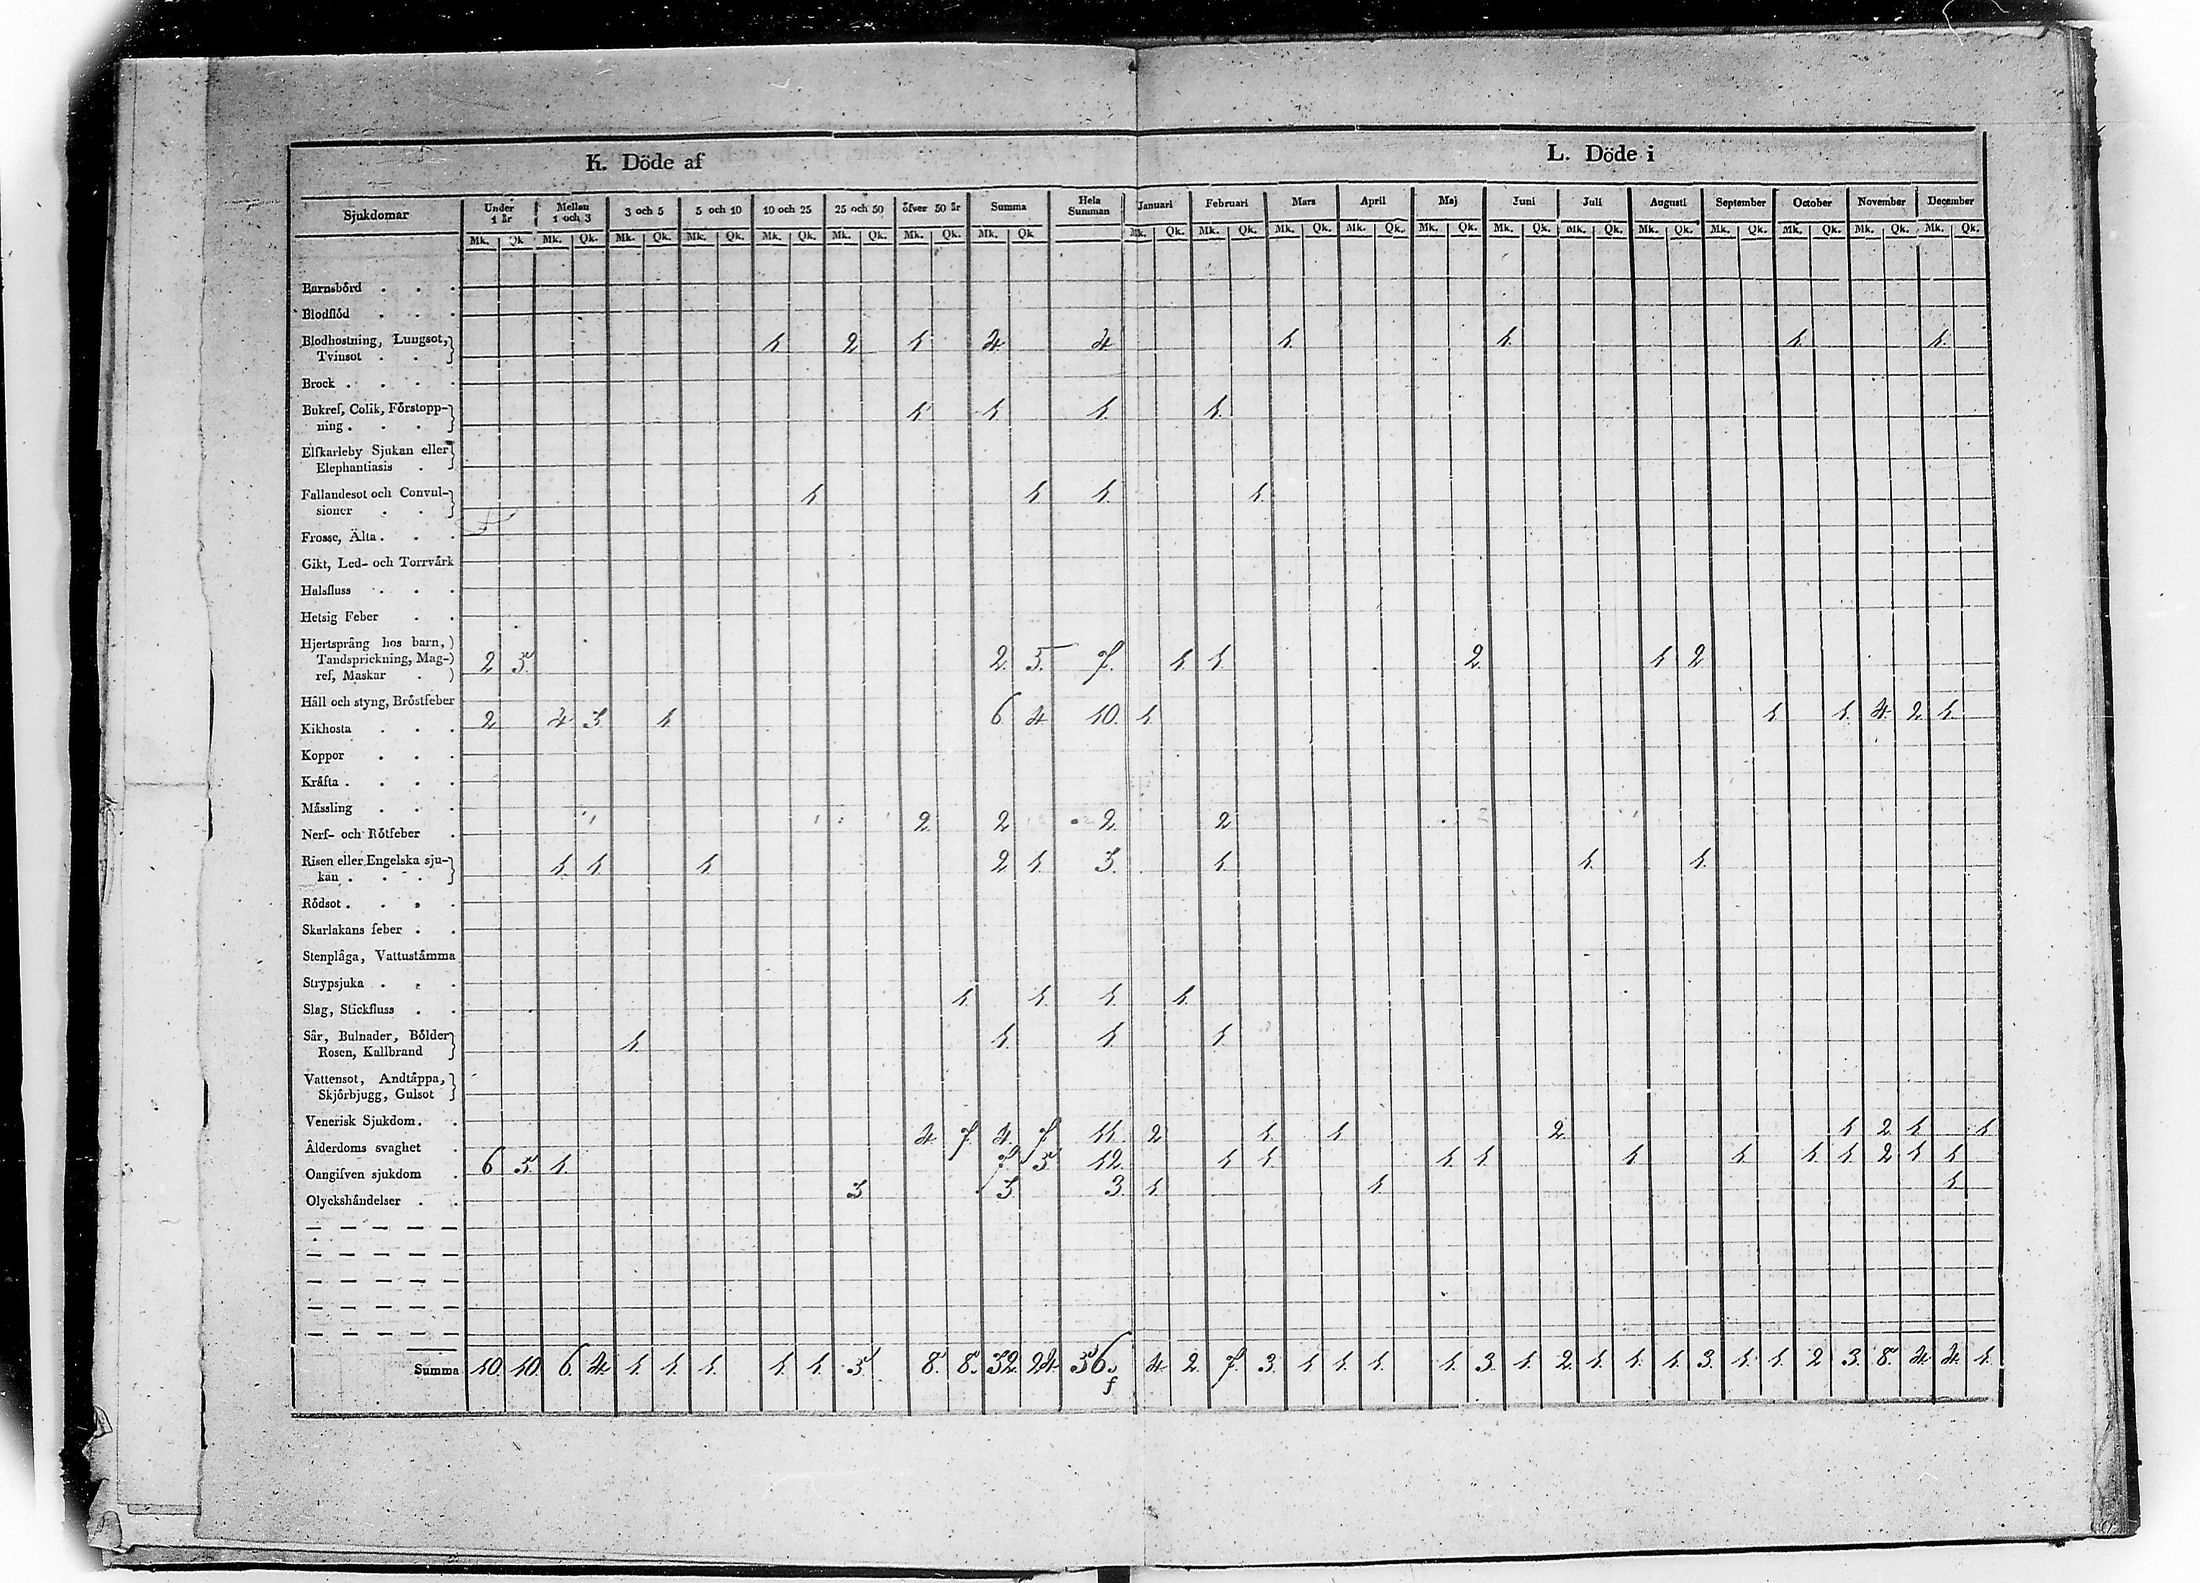 K. Döde af L. Döde i
Sjukdomar Under 1 år Mellan 1 och 3 3 och 5 5 och 10 10 och 25 25 och 50 öfver 50 år Summa Hela Summan Januari Februari Mars April Maj Juni Juli Augusti September October November December
Mk. Qk Mk. Qk. Mk. Qk. Mk. Qk. Mk. Qk. Mk. Qk. Mk. Qk. Mk. Qk Mk. Qk. Mk. Qk. Mk. Qk. Mk. Qk. Mk. Qk. Mk. Qk. Mk. Qk. Mk. Qk. Mk. Qk. Mk. Qk. Mk. Qk. Mk. Qk.
Barnsbörd . . .
Blodflöd . . .
Blodhostning, Lungsot, 1 2 1 4 4 1. 1. 1. 1.
Tvinsot . . .
Brock . . . .
Bukref, Colik, Förstopp- 1 1 1. 1.
ning . . . .
Elfkarleby Sjukan eller
Elephantiasis .
Fallandesot och Convul- 1 1 1. 1.
sioner . . .
Frosse, Älta . . .
Gikt, Led- och Torrvärk
Halsfluss . . .
Hetsig Feber . .
Hjertsprång hos barn,
Tandsprickning, Mag- 2 5. 2. 5. 7. 1 1. 2. 1 2
ref, Maskar .
Håll och styng, Bröstfeber
Kikhosta . . . 2 4 3 1 6 4 10. 1. 1 1. 4. 2 1.
Koppor . . .
Kräfta . . . .
Mässling . . .
Nerf- och Rötfeber . 2. 2 2. 2
Risen eller Engelska sju- 1. 1 1 2 1. 3. 1. 1. 1.
kan . . . .
Rödsot . . . .
Skarlakans feber . .
Stenplåga, Vattustämma
Strypsjuka . . .
Slag, Stickfluss . . 1. 1. 1 1.
Sår, Bulnader, Bölder 1. 1. 1. 1.
Rosen, Kallbrand
Vattensot, Andtäppa,
Skjörbjugg, Gulsot
Venerisk Sjukdom . .
Ålderdoms svaghet . 4. 7. 4. 7 11. 2 1. 1 2 1 2 1 1
Oangifven sjukdom . 6 5. 1. 7. 5 12. 1 1. 1 1 1 1 1 1 2 1 1
Olyckshändelser . . 3 3. 3. 1 1 1
Summa 10. 10. 6. 4. 1. 1. 1. 1. 1. 5. 8. 8. 32. 24. 56. 4. 2. 7. 3. 1 1. 1. 1. 3. 1. 2. 1. 1. 1. 3. 1. 1. 2 3. 8. 4. 4. 1.